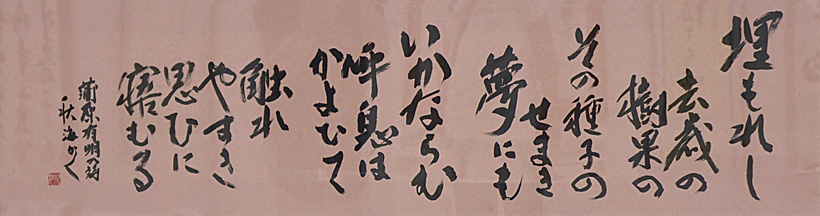 埋もれし
去歳の
樹果の
その種子の
せまき
夢にも
いかならむ
呼息は
かよひて
触れ
やすき
思ひに
寤むる
蒲原有明の詩
秋海かく